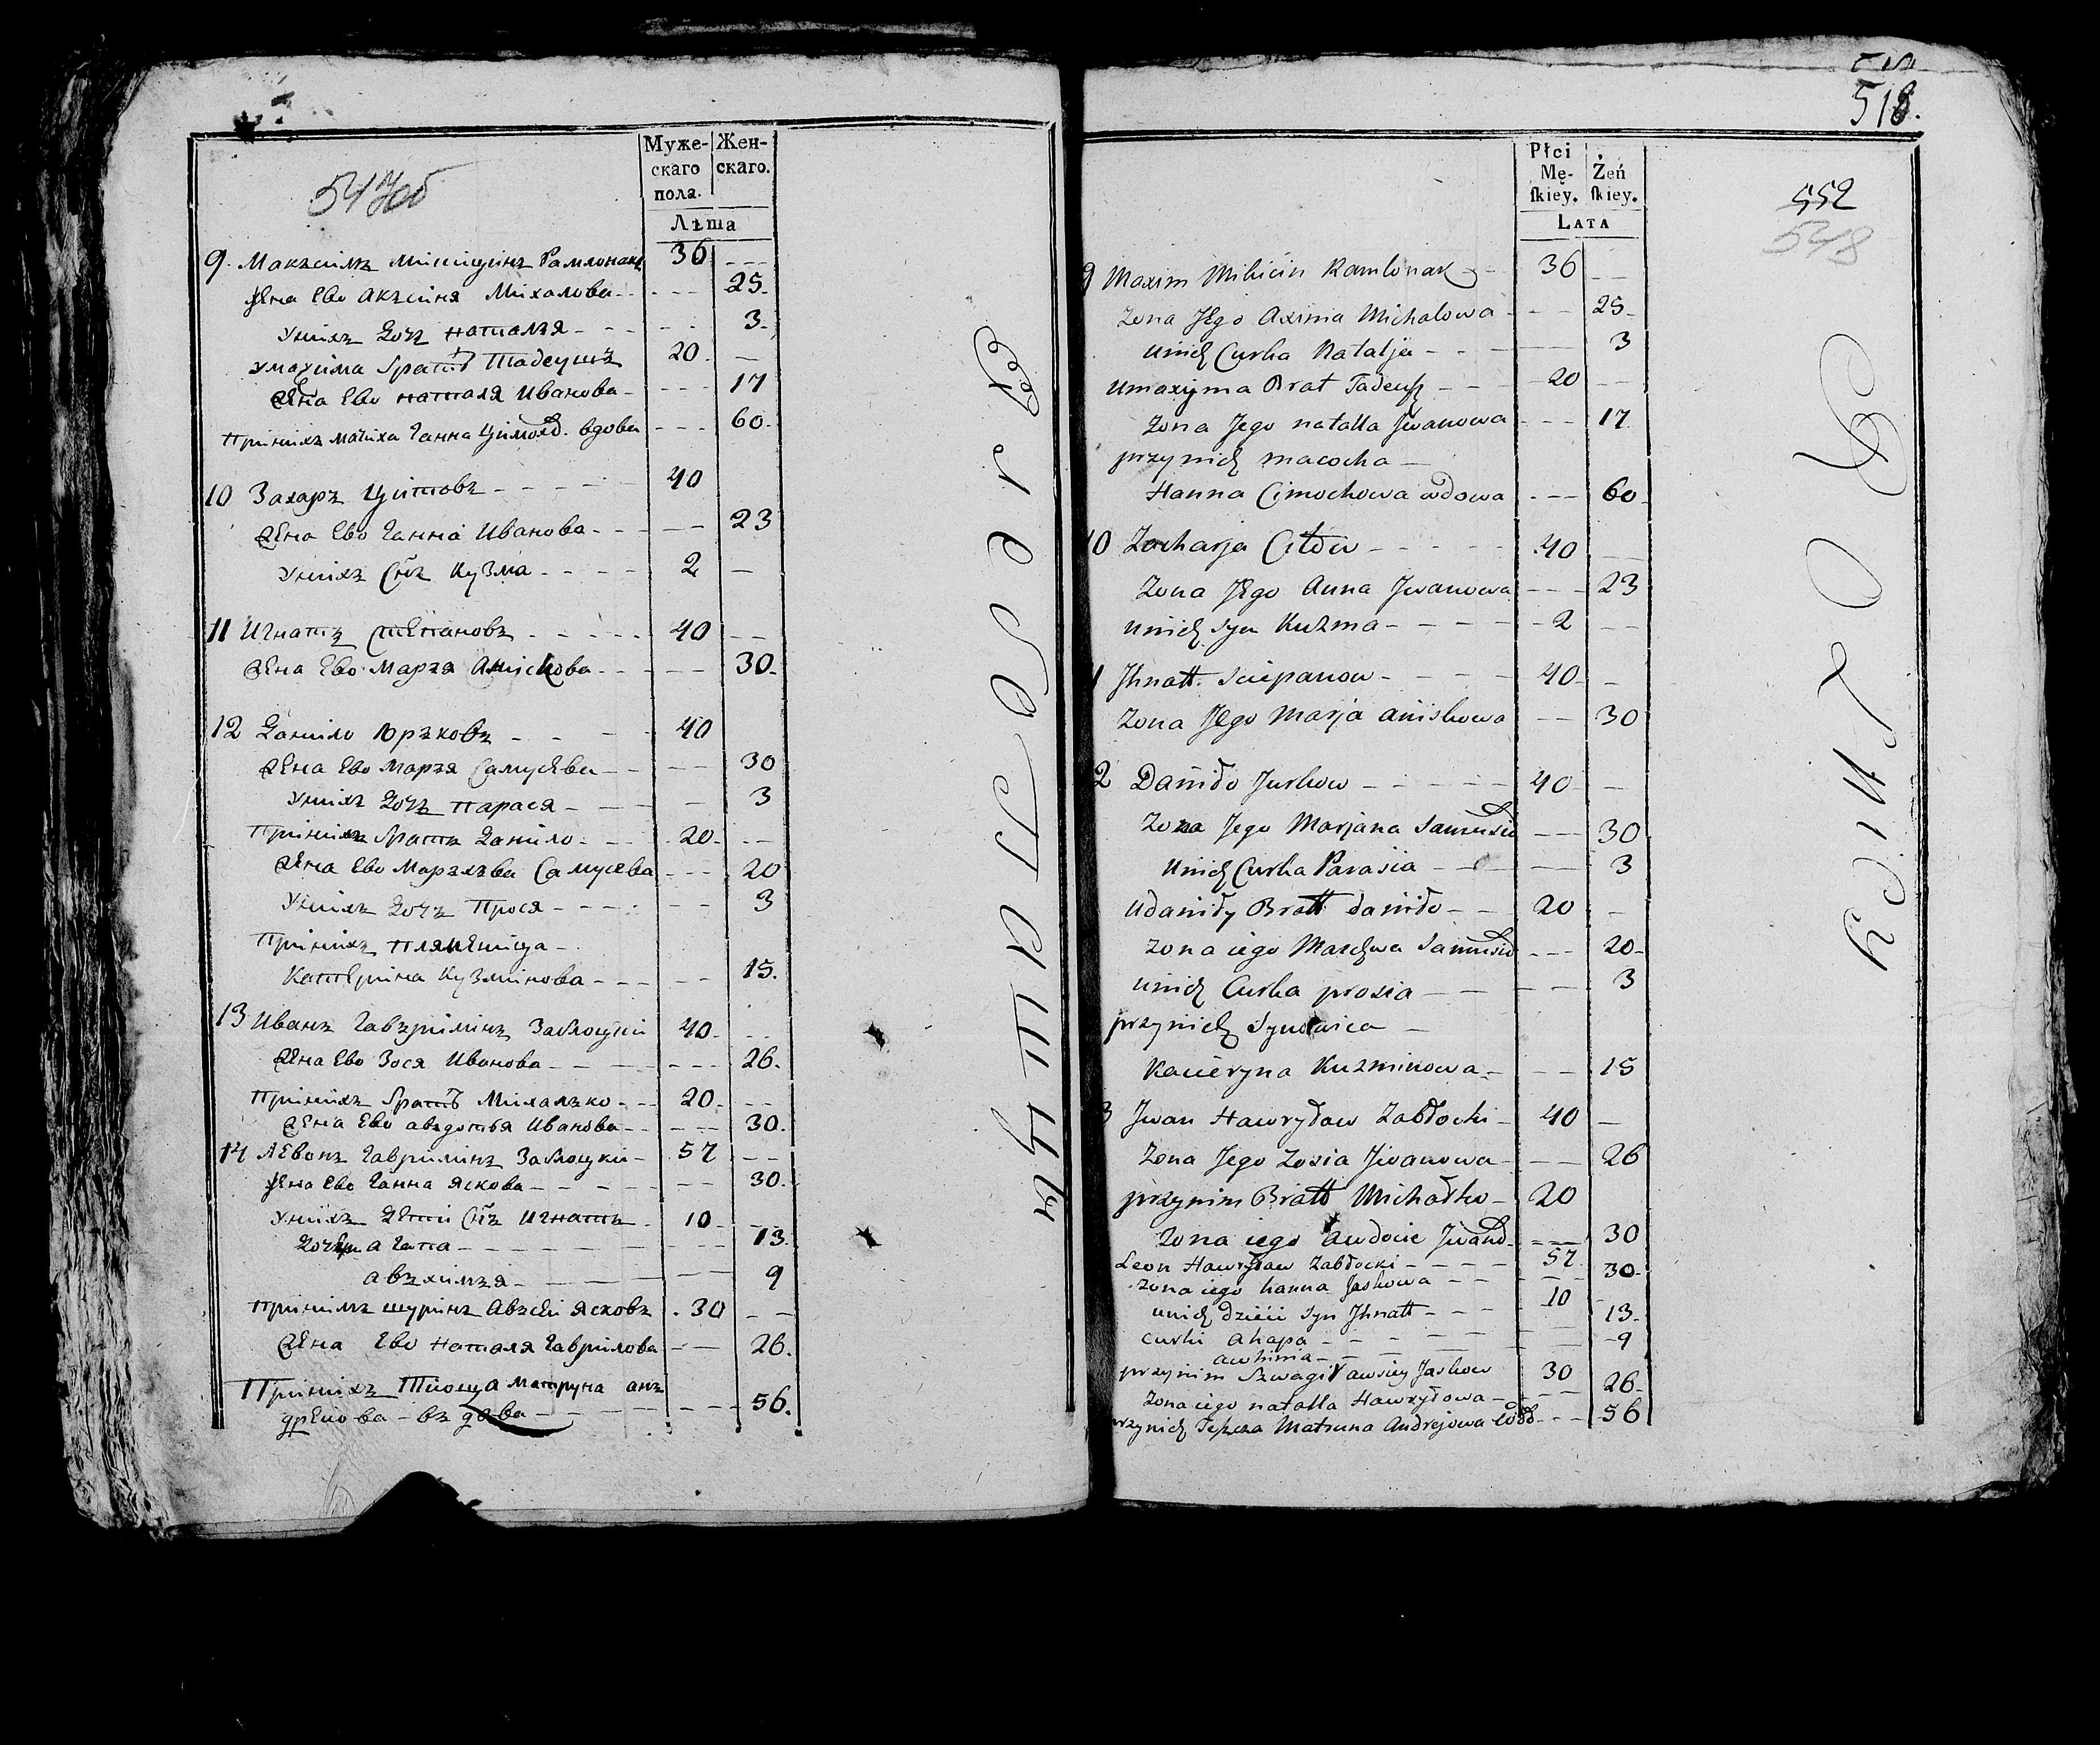 547об
Муже-
скаго
пола.
Жен-
скаго.
Лѣта
9. Макзимъ Рамлонакъ 36
Жена Ево Акзиня Михалова 25.
Унихъ Дочъ наталья 3.
Умахима братъ Тадеушъ 20
Жена Ево наталя Иванова 17
Принихъ мачиха Ганна Цимохо. вдова 60.
10 Захаръ Цитовъ 40
Жена Ево Ганна Иванова 23
Унихъ Снъ Кузма 2
11 Игнатъ Степановъ 40
Жена Ево Маръя Анискова 30.
12 Данило Юръковъ 40
Жена Ево Маръя Самусева 30
Унихъ Дочъ Парася 3
Принихъ братъ Данило 20.
Жена Ево Самусева 20
Унихъ Дочъ Прося 3
Принихъ племеница
Катерина Кузминова 15.
13 Иванъ Гавърилинъ Заблоцкий 40.
Жена Ево Зося Иванова 26.
Принихъ братъ Михалъко 20.
Жена Ево авъдотья Иванова 30.
14 Левонъ Гаврилинъ Заблоцки 57
Жена Ево Ганна Яскова 30.
Унихъ Дети Снъ Игнатъ 10
Дочери Агапа 13.
9
Принимъ шуринъ Авъсеи Ясковъ 30
Жена Ево Наталя Гаврилова 26.
Принихъ Тиоща Матруна анъ
дреиова въдова 56.
Деревня
518.
Płci
Mę-
ſkiey.
Żeń
ſkiey.
LATA
552
548
9 Maxim Mikicin Ramlonak 36
Zona Jego Axinia Michalowa 25
unich Curka Natalja 3
umaxyma Brat Tadeusz 20
Zona Jego natalla Jwanowa 17
przynich macocha
Hanna Cimochowa wdowa 60
10 Zacharja Citow 40
Zona Jego Anna Jwanowa 23
unich syn Kuzma 2
1 Jhnatt Sciepanow 40
Zona Jego Marja aniskowa 30
2 Daniło Jurkow 40
Zona Jego Marjana Samusio 30
Unich Curka Parasia 3
udaniły Bratt daniło 20
zona iego Samusio 20
unich Curka prosia 3
przynich Synowica
Kacieryna Kuzminowa 15
3 Jwan Hawryław Zabłocki 40
Zona Jego Zosia Jwanowa 26
przynim Bratt Michałko 20
Zona iego Awdocie Jwano 30
Leon Hawryław Zabłocki 57
zona iego hanna Jaskowa 30
unich dzieci Syn Jhnatt 10
curki ahapa 13
awhinia 9
przynim Szwagir awsiey Jaskow 30
Zona iego natalla Hawryłowa 26
przynich Teszcza Matruna Andrejowa wdo 56